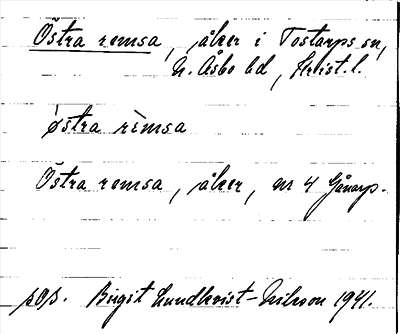 Östra remsa, åker i Tostarps sn,
N. Åsbo hd, Krist. l.
östra rìmsa
Östra remsa, åker, nr 4 Gånarp.
pop. Birgit Lundkvist-Nilsson 1941.